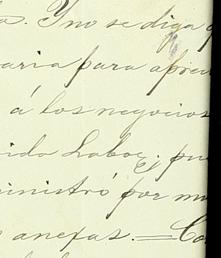 s. Y no se diga q
aria para apreu
á los negocios
ida Labor, pue
ministró por mu
s anexas. = Co